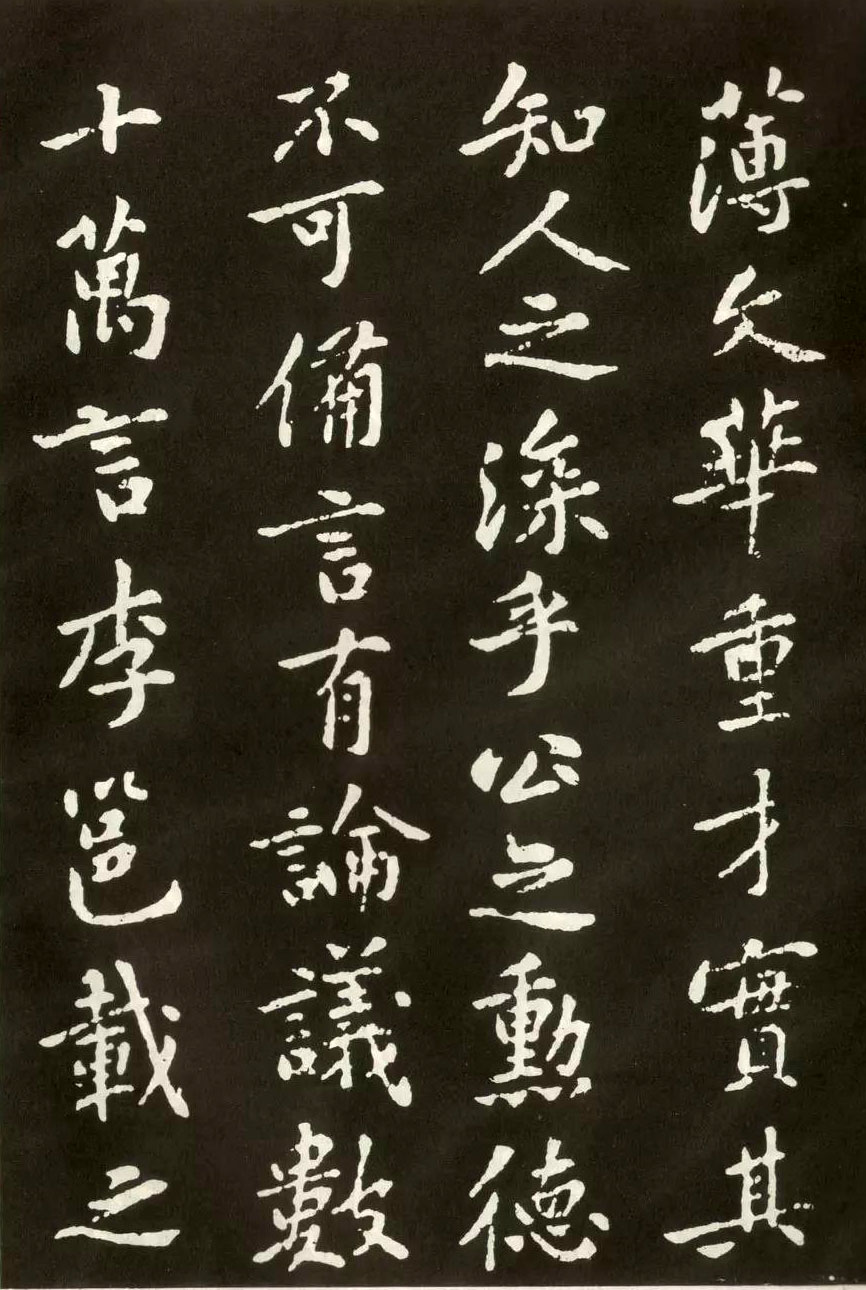 薄文華重才實其
知人之深乎公之勳德
不可備言有論議數
十萬言李邕載之